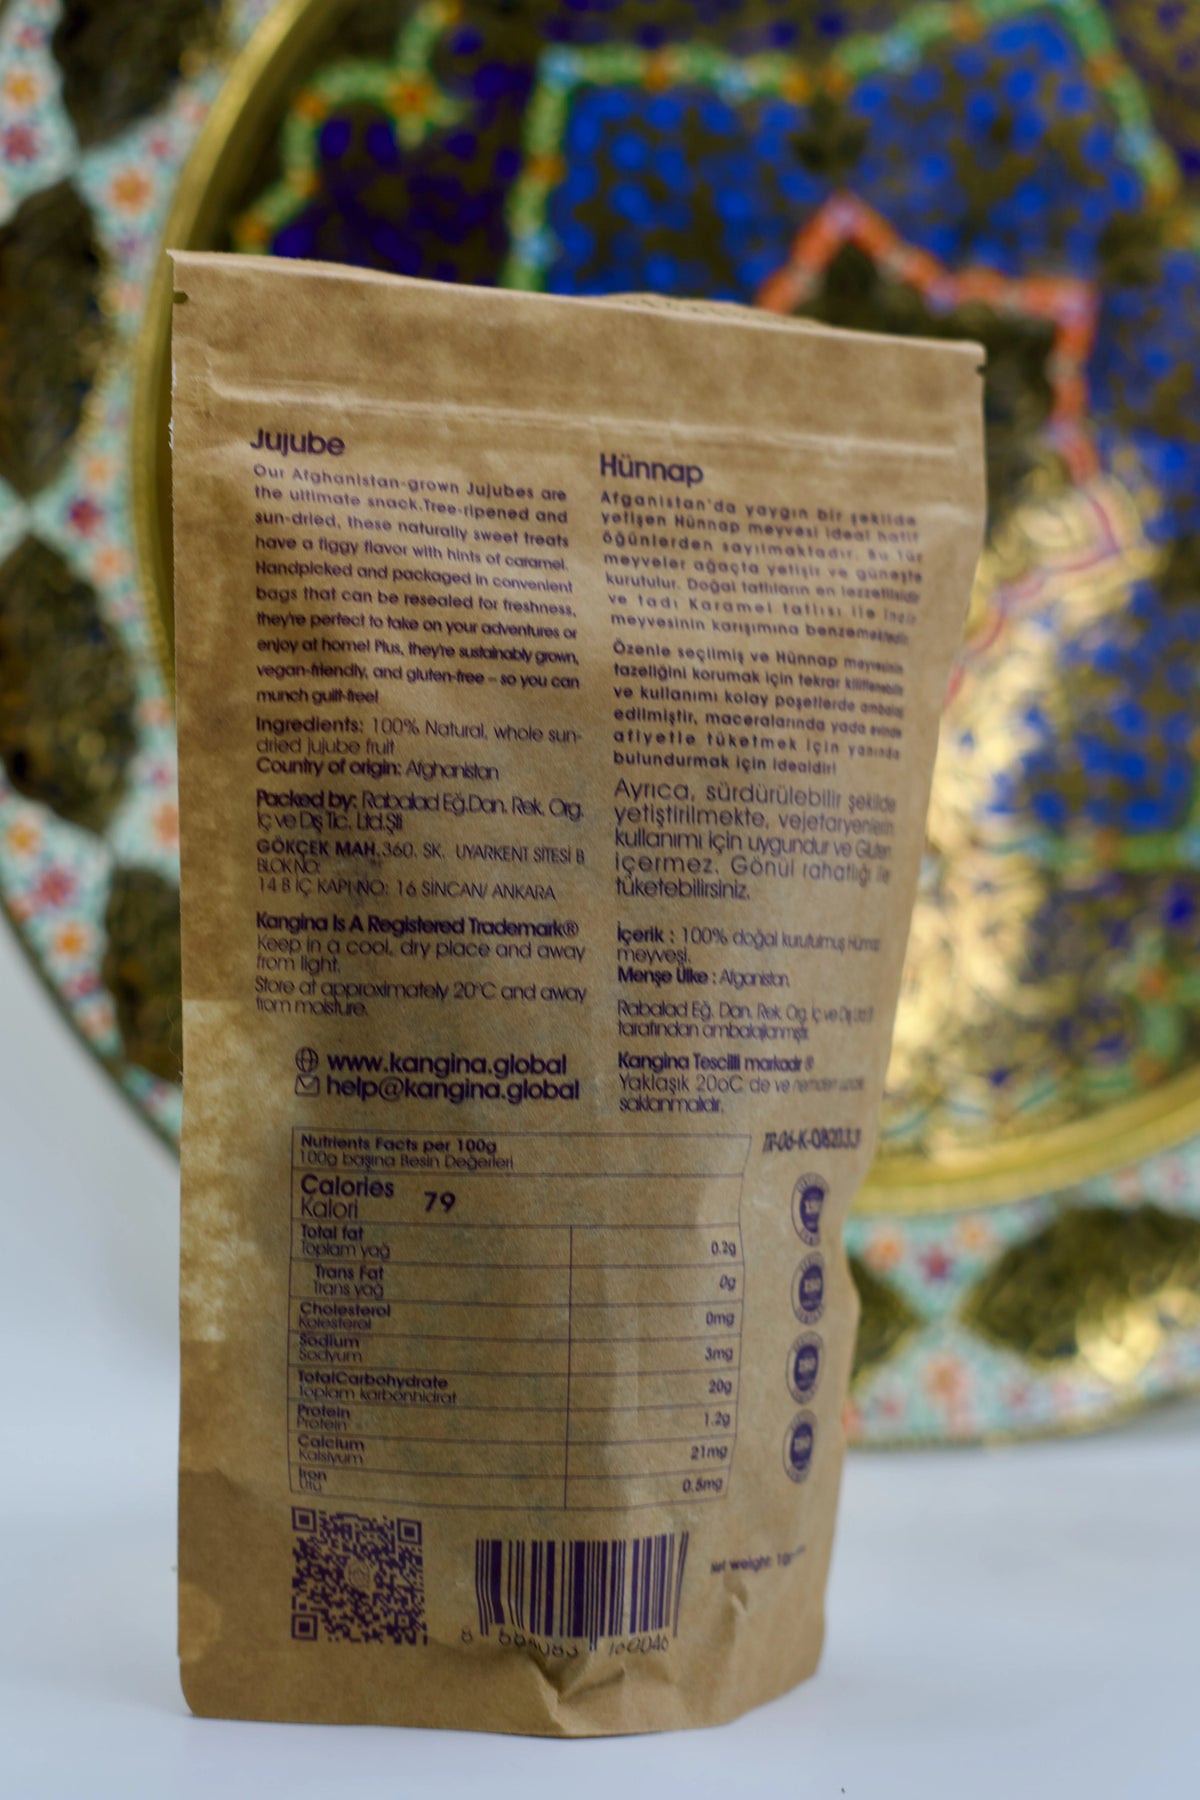 Jujube
Our Afghanistan-grown Jujubes are
the ultimate snack.Tree-ripened and
sun-dried, these naturally sweet treats
have a figgy flavor with hints of caramel.
Handpicked and packaged in convenient
bags that can be resealed for freshness,
they're perfect to take on your adventures or
enjoy at home! Plus, they're sustainably grown,
vegan-friendly, and gluten-free – so you can
munch guilt-free!
Ingredients: 100% Natural, whole sun-
dried jujube fruit
Country of origin: Afghanistan
Packed by: Rabalad Eğ.Dan. Rek. Org.
İç ve Dış Tic. Ltd.Şti
GÖKÇEK MAH.360. SK. UYARKENT SİTESİ B
BLOK NO:
14 B İÇ KAPI NO: 16 SİNCAN/ ANKARA
Kangina Is A Registered Trademark®
Keep in a cool, dry place and away
from light.
Store at approximately 20°C and away
from moisture.
www.kangina.global
help@kangina.global
Hünnap
Afganistan'da yaygın bir şekilde
yetişen Hünnap meyvesi ideal hafif
öğünlerden sayılmaktadır. Bu tür
meyveler ağaçta yetişir ve güneşte
kurutulur. Doğal tatlıların en lezzetlisidir
ve tadı Karamel tatlısı ile incir
meyvesinin karışımına benzemektedir.
Özenle seçilmiş ve Hünnap meyvesinin
tazeliğini korumak için tekrar kilitlenebilir
ve kullanımı kolay poşetlerde ambalaj
edilmiştir, maceralarında yada evinde
afiyetle tüketmek için yanında
bulundurmak için idealdir!
Ayrıca, sürdürülebilir şekilde
yetiştirilmekte, vejetaryenlerin
kullanımı için uygundur ve Gluten
içermez. Gönül rahatlığı ile
tüketebilirsiniz.
İçerik : 100% doğal kurutulmuş Hünnap
meyvesi.
Menşe Ülke : Afganistan.
Rabalad Eğ. Dan. Rek. Og. İç ve Dış
tarafından ambalajlanmıştır.
Kangina Tescilli markadır ®
Yaklaşık 20oC de ve nemden uzak
saklanmalıdır.
TR-06-K-082033
Nutrients Facts per 100g
100g başına Besin Değerleri
Calories 79
Kalori
Total fat 0.2g
Toplam yağ
Trans Fat 0g
Trans yağ
Cholesterol 0mg
Kolesterol
Sodium 3mg
Sodyum
TotalCarbohydrate 20g
Toplam karbonhidrat
Protein 1.2g
Protein
Calcium 21mg
Kalsiyum
Iron 0.5mg
Utu
net weight: